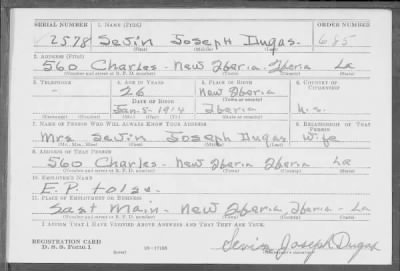 SERIAL NUMBER 1. NAME (Print) ORDER NUMBER
2578 Sevin Joseph Dugas. 685
(First) (Middle) (Last)
2. ADDRESS (Print)
560 Charles - New Iberia - Iberia La
(Number and street or R. F. D. number) (Town) (County) (State)
3. TELEPHONE 4. AGE IN YEARS 5. PLACE OF BIRTH 6. COUNTRY OF CITIZENSHIP
26 New Iberia
DATE OF BIRTH (Town or county)
Jan-5-1914 Iberia U.S.
(Exchange) (Number) (Mo.) (Day) (Yr.) (State or country)
7. NAME OF PERSON WHO WILL ALWAYS KNOW YOUR ADDRESS 8. RELATIONSHIP OF THAT PERSON
Mrs Sevin Joseph Dugas Wife
(Mr., Mrs., Miss) (First) (Middle) (Last)
9. ADDRESS OF THAT PERSON
560 Charles - New Iberia Iberia La
(Number and street or R. F. D. number) (Town) (County) (State)
10. EMPLOYER'S NAME
E.P.
11. PLACE OF EMPLOYMENT OR BUSINESS
East Main - New Iberia, Iberia - La
(Number and street or R. F. D. number) (Town) (County) (State)
I AFFIRM THAT I HAVE VERIFIED ABOVE ANSWERS AND THAT THEY ARE TRUE.
REGISTRATION CARD
D. S. S. Form 1 (over) 16-17105 Sevin Joseph Dugas